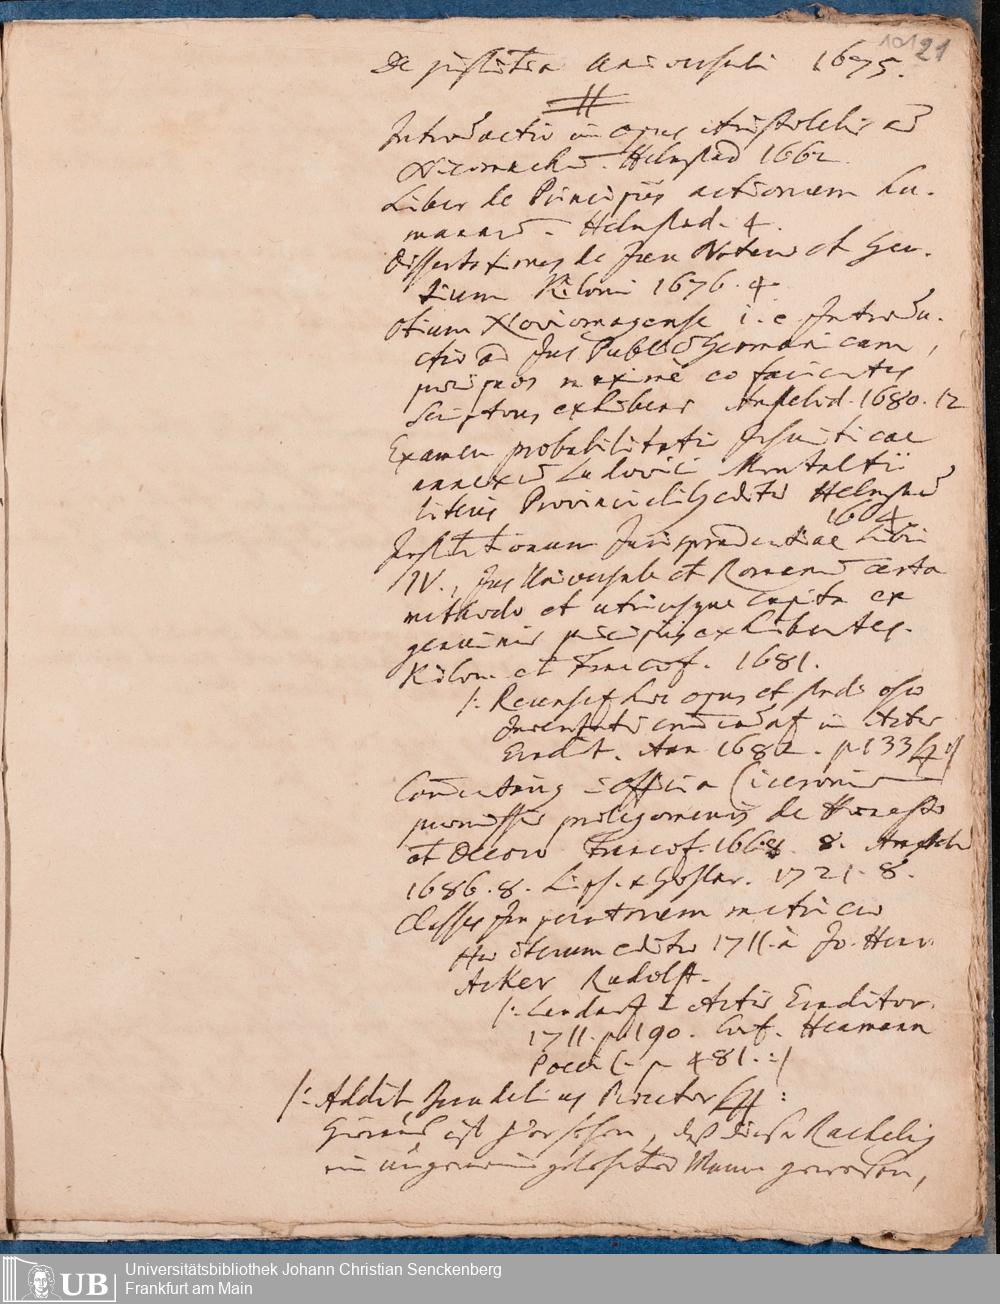 101 21
De justitia universali 1675.
Introductio in opus Aristotelis ad
Nicomachũ. Helmstad 1662
Liber de Principiis actionum hu-
manarũ. Helmstad. 4.
Dissertationes de Jure Naturae et Gen-
tium Kiloni 1676. 4
Otium Noviomagense i. e. Introdu-
ctio ad Jus Publicũ Germanicum,
praecipuos maximè eo facientes
Scriptores exhibens Amstelod. 1680. 12
Examen probabilitatis Jesuiticae
annexũ Ludovici Montaltii
literis Provincialibus editis Helmstad
1664
Institutionum Jurisprudentiae Libri
IV., Jus Universale et Romanũ certa
methodo et utriusque capita ex
genuinis principiis exhibentes.
Kilon. et Francof. 1681.
/: Recensetur hoc opus et studiosae
Juventuti in Actis
Erudit. Ann 1682. p 133 sq :/
Comentarius in Officia Ciceronis
praemissis prolegomenis de Honesto
et Decoro Francof. 1668. 8. Amstel
1686. 8. Lips. & Goslar. 1721. 8.
Classes Imperatorum metricae
iterum editae 1711. à Jo. Henr.
Acker Rudolst.
/: Laudatur I Actis Eruditor.
1711. p. 190. Conf. Heumann
Poecil. p 481. :/
/: Addit Brudelius Rector sqq :
Hieraus ist zu ersehen, daß dieser Rachelius
ein ungemein gelehrter Mann gewesen,
UB Universitätsbibliothek Johann Christian Senckenberg
Frankfurt am Main